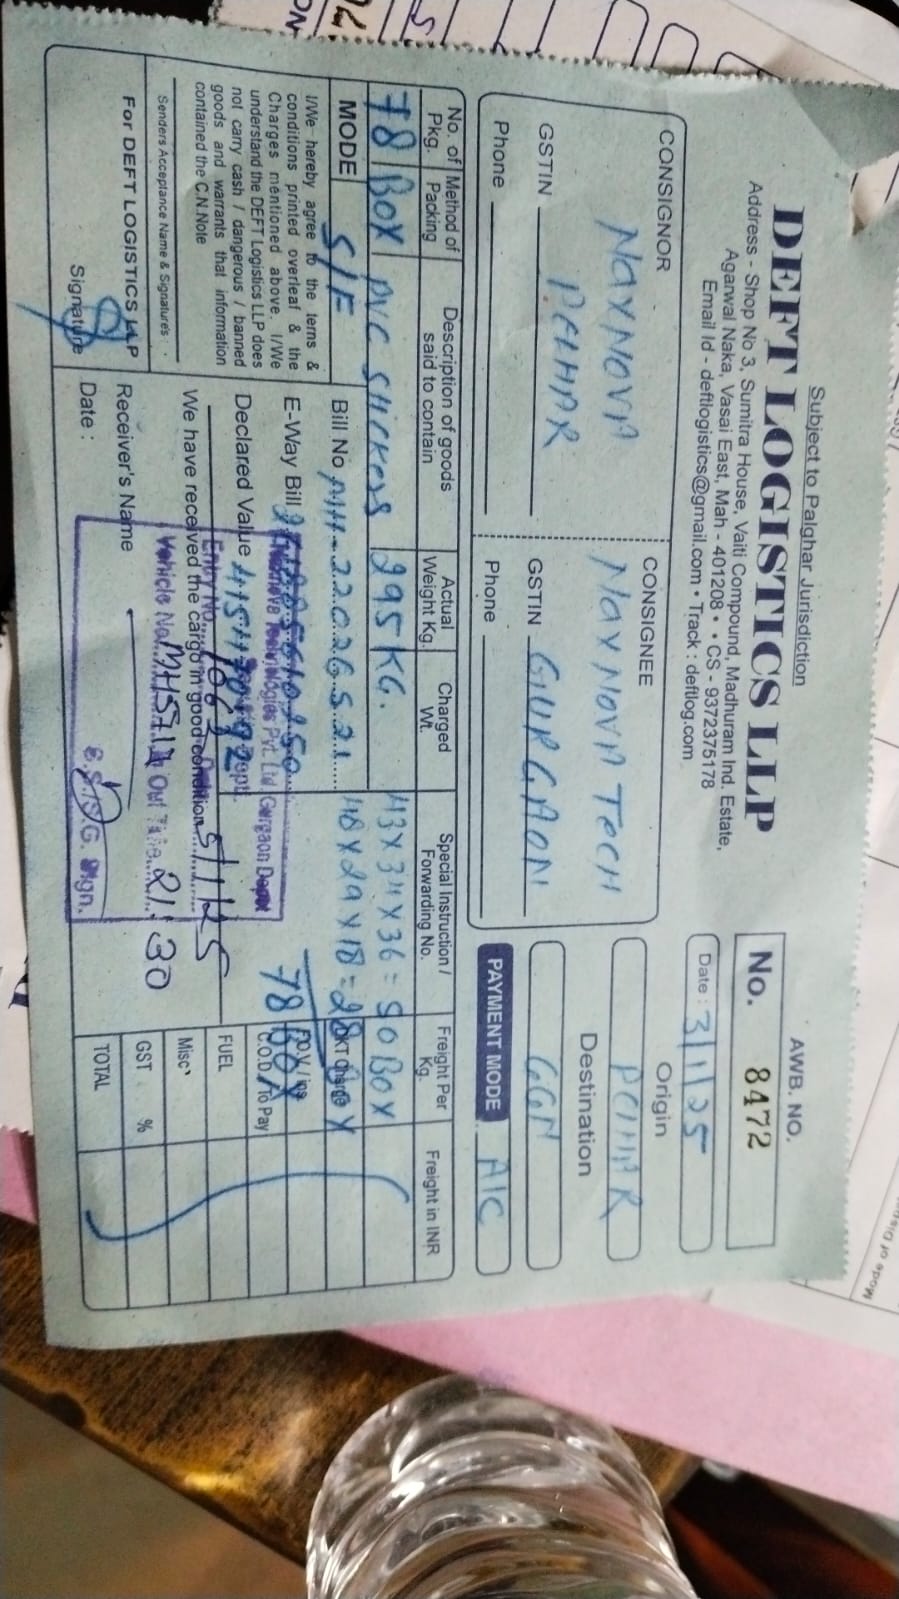 Subject to Palghar Jurisdiction
DEFT LOGISTICS LLP
Address - Shop No 3, Sumitra House, Vaiti Compound, Madhuram Ind. Estate,
Agarwal Naka, Vasai East, Mah - 401208 • • CS - 9372375178
Email Id - deftlogistics@gmail.com • Track : deftlog.com
AWB. NO.
No. 8472
Date : 3/1/25
CONSIGNOR
NAXNOVA
PELHAR
GSTIN
Phone
CONSIGNEE
NAXNOVA TECH
GSTIN GURGAON
Phone
Origin
PELHAR
Destination
GGN
PAYMENT MODE A/C
No. of Pkg. Method of Packing Description of goods said to contain Actual Weight Kg. Charged Wt. Special Instruction / Forwarding No. Freight Per Kg. Freight in INR
78 BOX PVC Stickers 295 KG. 43 X 34 X 36 = 50 BOX
48 X 29 X 18 = 28 BOX
78 BOX
MODE S/F
Bill No MH-22026521
E-Way Bill
Declared Value
I/We hereby agree to the terms &
conditions printed overleaf & the
Charges mentioned above. I/We
understand the DEFT Logistics LLP does
not carry cash / dangerous / banned
goods and warrants that information
contained the C.N.Note
Senders Acceptance Name & Signature's
For DEFT LOGISTICS LLP
Signature
We have received the cargo in good condition
Receiver's Name
Date :
Technologies Pvt. Ltd. Gurgaon Depot
Entry No. 1063 5/1/25
Vehicle No. Out Time 21:30
Sign.
DKT Charge
FOV / ins
C.O.D / To Pay
FUEL
Misc'
GST %
TOTAL